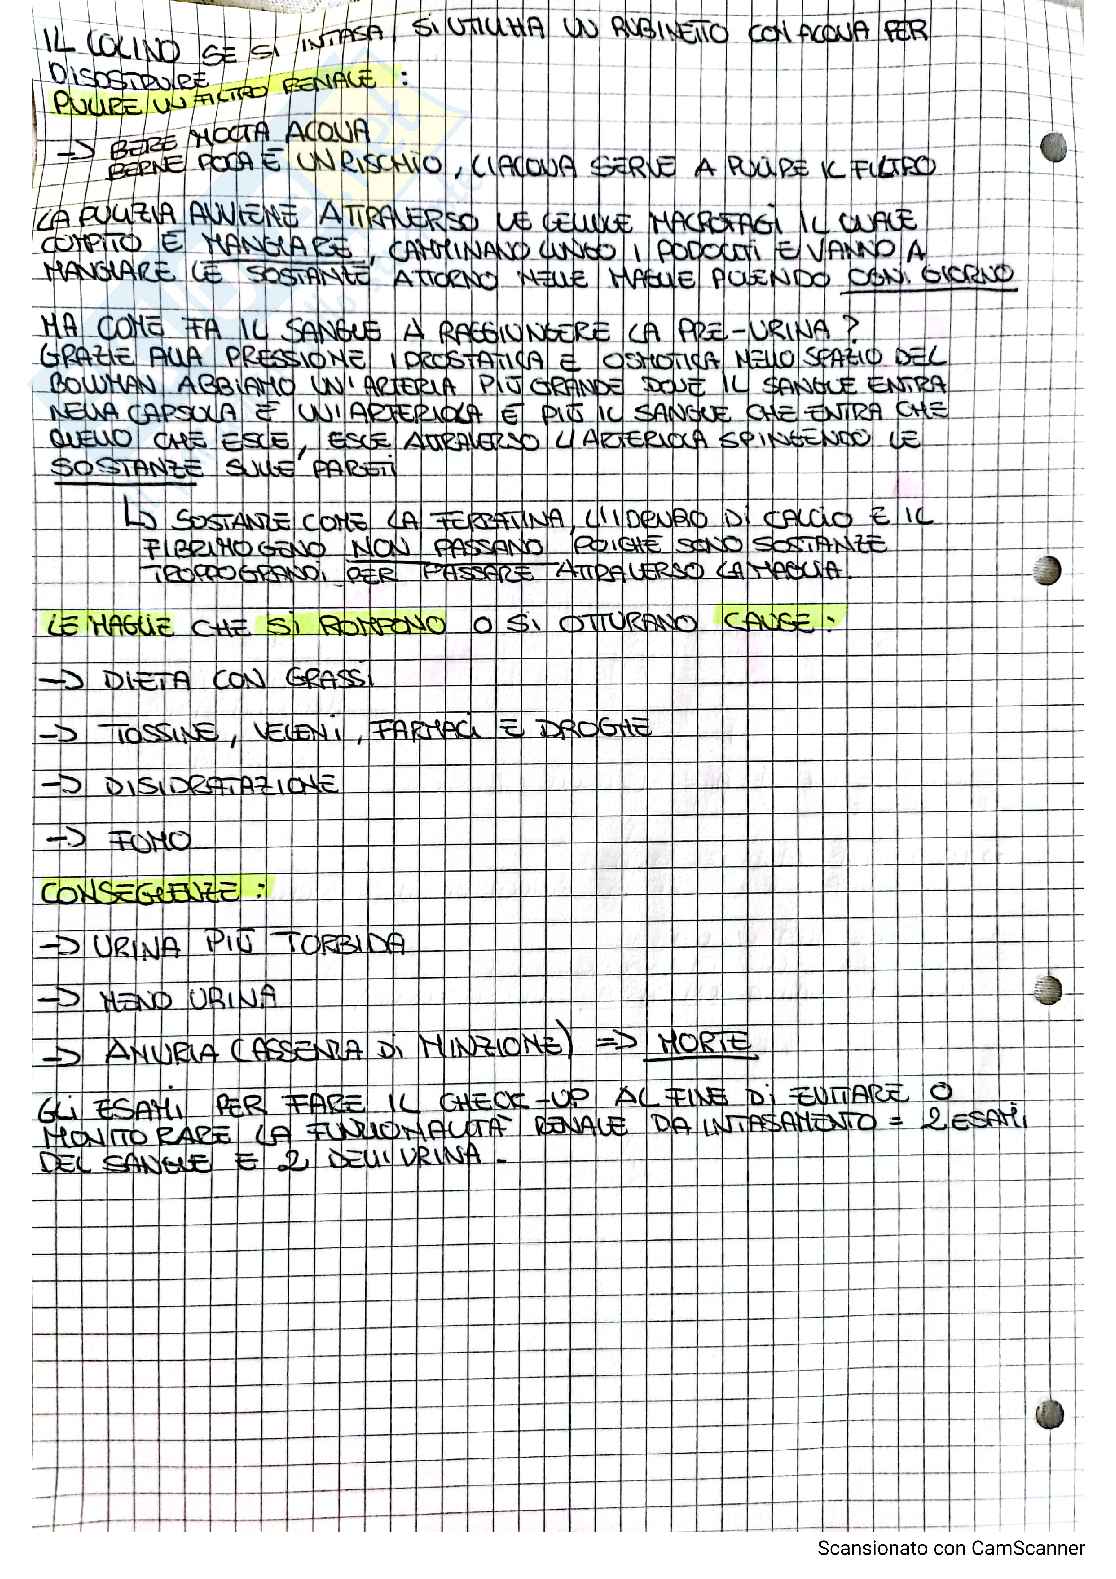 IL COLINO SE SI INTASA, SI UTILIZZA UN RUBINETTO CON ACQUA PER
DISOSTRUIRE
PULIRE UN FILTRO RENALE :
→ BERE MOLTA ACQUA
BERNE POCA È UN RISCHIO, L'ACQUA SERVE A PULIRE IL FILTRO
LA PULIZIA AVVIENE ATTRAVERSO LE CELLULE MACROFAGI IL QUALE
COMPITO È MANGIARE, CAMMINANO LUNGO I PODOCITI E VANNO A
MANGIARE LE SOSTANZE ATTORNO NELLE MAGLIE PULENDO OGNI GIORNO
MA COME FA IL SANGUE A RAGGIUNGERE LA PRE-URINA ?
GRAZIE ALLA PRESSIONE IDROSTATICA E OSMOTICA NELLO SPAZIO DEL
BOWMAN ABBIAMO UN'ARTERIA PIÙ GRANDE DOVE IL SANGUE ENTRA
NELLA CAPSULA E UN'ARTERIOLA E PIÙ IL SANGUE CHE ENTRA CHE
QUELLO CHE ESCE, ESCE ATTRAVERSO L'ARTERIOLA SPINGENDO LE
SOSTANZE SULLE PARETI
↳ SOSTANZE COME LA FERRITINA, L'IDENDRO DI CALCIO E IL
FIBRINOGENO NON PASSANO POICHÈ SONO SOSTANZE
TROPPO GRANDI PER PASSARE ATTRAVERSO LA MAGLIA.
LE MAGLIE CHE SI ROMPONO O SI OTTURANO CAUSE :
→ DIETA CON GRASSI
→ TOSSINE, VELENI, FARMACI E DROGHE
→ DISIDRATAZIONE
→ FUMO
CONSEGUENZE :
→ URINA PIÙ TORBIDA
→ MENO URINA
→ ANURIA (ASSENZA DI MINZIONE) => MORTE
GLI ESAMI PER FARE IL CHECK-UP AL FINE DI EVITARE O
MONITORARE LA FUNZIONALITÀ RENALE DA INTASAMENTO = 2 ESAMI
DEL SANGUE E 2 DELL'URINA.
Scansionato con CamScanner